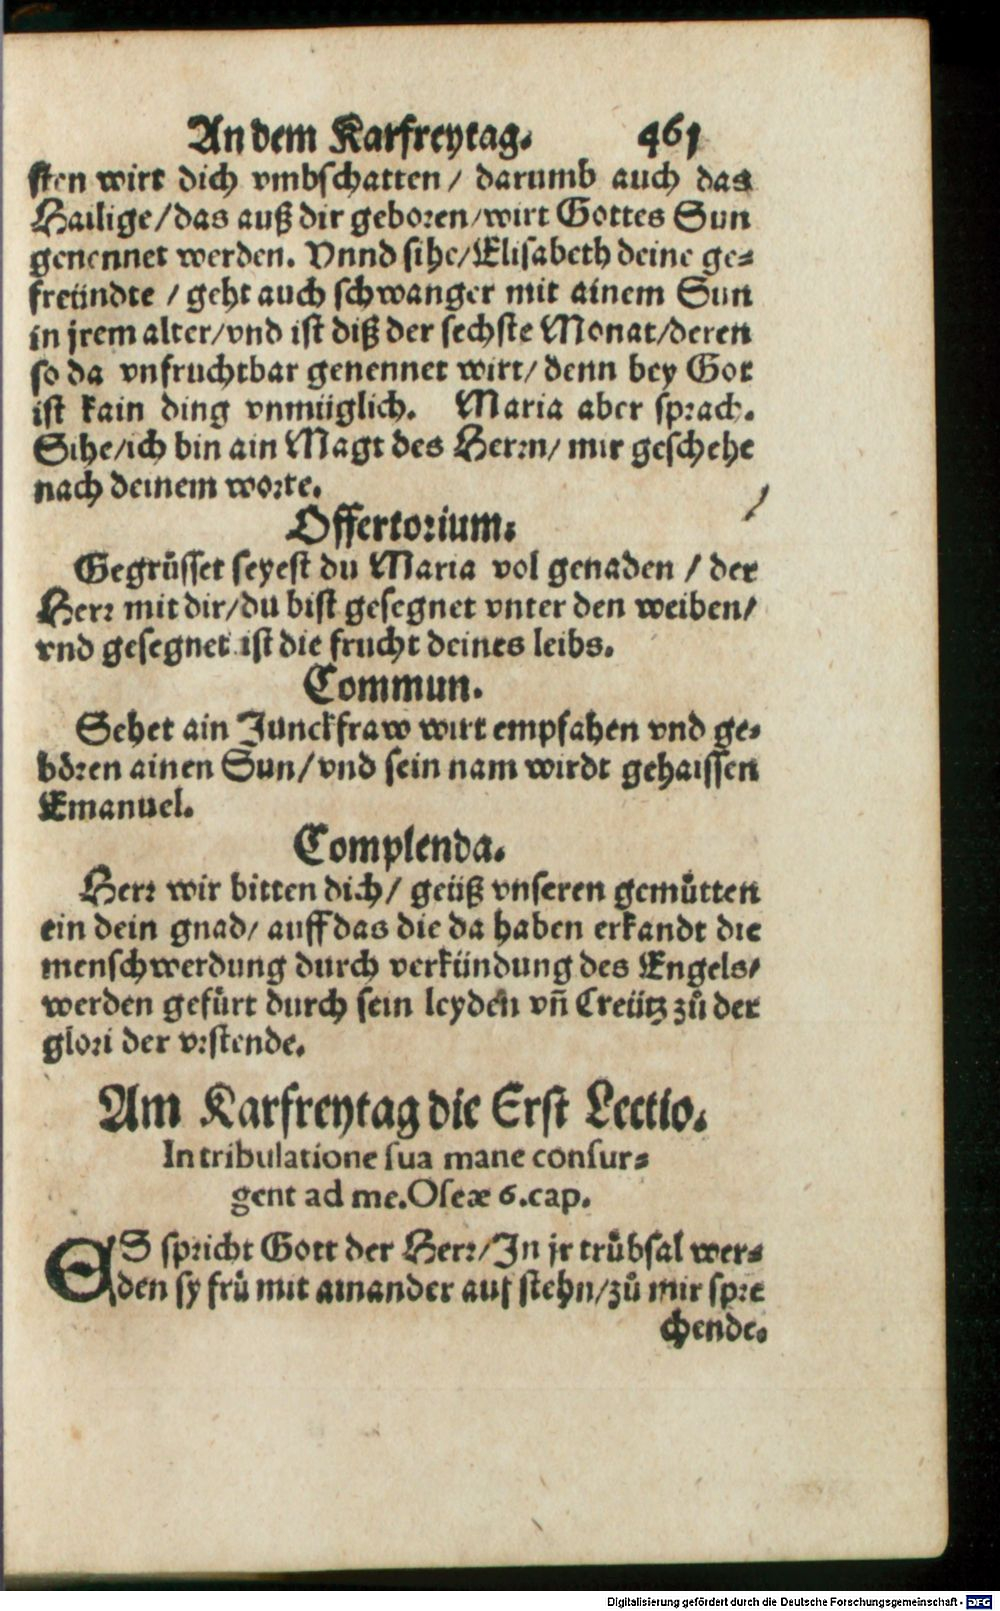 An dem Karfreytag. 461
sten wirt dich vmbschatten / darumb auch das
Hailige/das auß dir geboren/wirt Gottes Sun
genennet werden. Vnnd sihe/Elisabeth deine ge-
freündte / geht auch schwanger mit ainem Sun
in jrem alter/vnd ist diß der sechste Monat/deren
so da vnfruchtbar genennet wirt/ denn bey Got
ist kain ding vnmüglich. Maria aber sprach.
Sihe/ich bin ain Magt des Herrn/ mir geschehe
nach deinem worte.
Offertorium.
Gegrůsset seyest du Maria vol genaden / der
Herr mit dir/du bist gesegnet vnter den weiben/
vnd gesegnet ist die frucht deines leibs.
Commun.
Sehet ain Junckfraw wirt empfahen vnd ge-
bören ainen Sun/vnd sein nam wirdt gehaissen
Emanuel.
Complenda.
Herr wir bitten dich/ geüß vnseren gemůtten
ein dein gnad/ auff das die da haben erkandt die
menschwerdung durch verkündung des Engels/
werden gefůrt durch sein leyden vñ Creütz zů der
glori der vrstende.
Am Karfreytag die Erst Lectio.
In tribulatione sua mane consur-
gent ad me. Oseæ 6. cap.
ES spricht Gott der Herr/In jr trůbsal wer-
den sy frů mit ainander auf stehn/zů mir spre
chende.
Digitalisierung gefördert durch die Deutsche Forschungsgemeinschaft - DFG